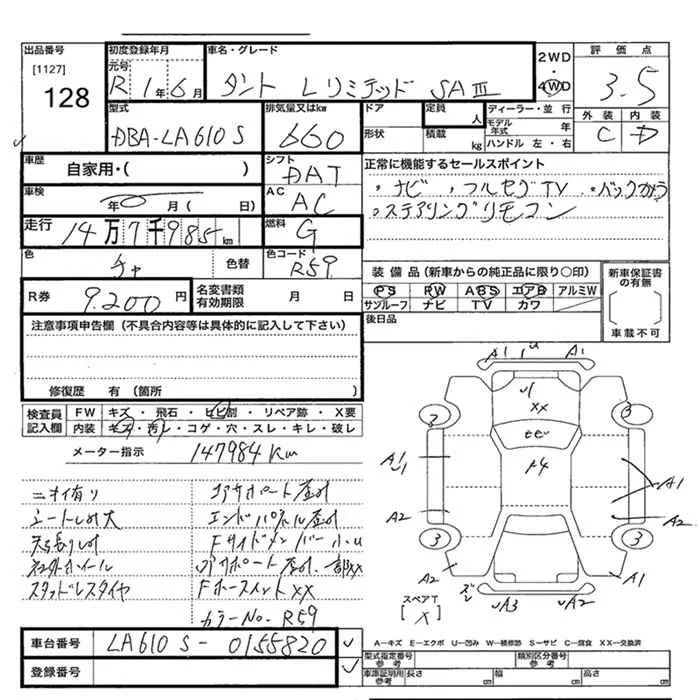 出品番号
[1127]
128
初度登録年月
元号
R 1年 6月
車名・グレード
タント LリミテッドSAⅢ
2WD
・
4WD
評価点
3.5
外装 内装
C D
型式
DBA-LA610S
排気量又はkw
660
ドア
形状
定員
人
積載
kg
ディーラー・並行
モデル年式 年
ハンドル 左・右
車歴
自家用・( )
シフト
DAT
車検
年 月 ( 日)
AC
AC
走行
14万7千985km
燃料
G
正常に機能するセールスポイント
・ナビ ・フルセグTV ・バックカメラ
・ステアリングリモコン
色
チャ
色替
色コード
R59
R券
9.200円
名変書類
有効期限
月 日
装備品(新車からの純正品に限り○印)
PS PW ABS エアB アルミW
サンルーフ ナビ TV カワ
後日品
新車保証書
の有無
[ ]
車載不可
注意事項申告欄(不具合内容等は具体的に記入して下さい)
修復歴 有(箇所 )
検査員
記入欄
FW キズ・飛石・ヒビ割・リペア跡・X要
内装 キズ・汚レ・コゲ・穴・スレ・キレ・破レ
メーター指示 147984Km
ニオイ有り
シートしめ大
社外ホイール
スタッドレスタイヤ
エンドパネル
カラーNo. R59
A1 U A1
XX
ヒビ
3
A1
A2
A1
A2
3 3
A2 A1
ズレ
A3 A2
スペアT
[X]
A-キズ E-エクボ U-凹み W-補修跡 S-サビ C-腐食 XX-交換済
車台番号 LA610S-0155820
登録番号
型式指定番号
参考
類別区分番号
参考
車庫証明用
参考
長さ cm 幅 cm 高さ cm